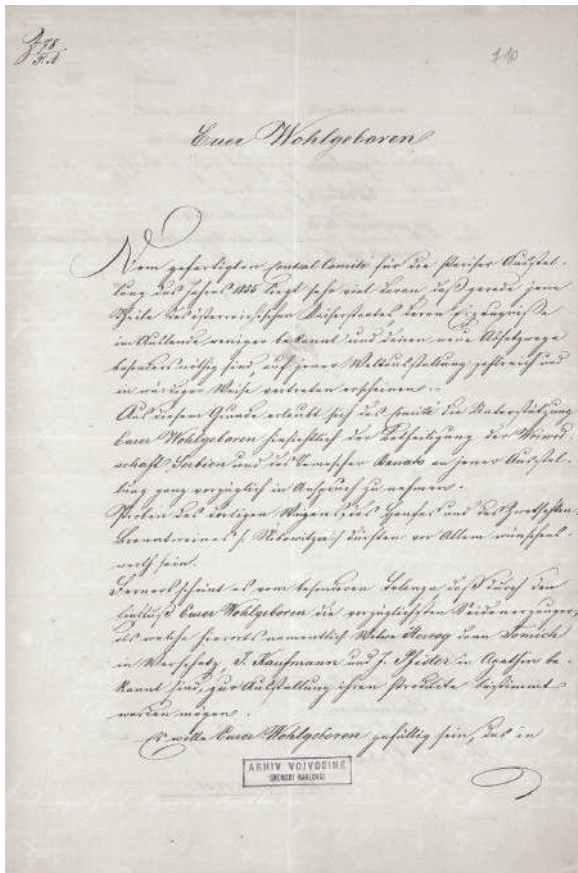 Z 78
P.A
110
Euer Wohlgeboren
Dem gefertigten Central Comité für die Pariser Ausstel-
lung des Jahres 1855 liegt sehr viel daran daß gerade jene
Theile des österreichischen Kaiserstaates deren Erzeugnisse
im Auslande weniger bekannt und denen neue Absatzwege
besonders nöthig sind, auf jener Weltausstellung zahlreich und
in würdiger Weise vertreten erscheinen.-
Aus diesem Grunde erlaubt sich das Comité die Unterstützung
Euer Wohlgeboren hinsichtlich der Betheiligung der Woiwod-
schaft Serbien und des Temescher Banats an jener Ausstel-
lung ganz vorzüglich in Anspruch zu nehmen.-
Proben des dortigen Weizens, des Hanfes und des Zwetschken-
Branntweines /: Slibowitza :/ dürften vor Allem wünschens-
werth sein.
Ferner scheint es vom besonderen Belange daß durch den
Einfluß Euer Wohlgeboren die vorzüglichsten Seidenerzeuger,
als welche hierorts namentlich Herzog Tomich
in Werschetz, J. Kaufmann und J. Pfeifer in Apathin be-
kannt sind, zur Ausstellung ihrer Producte bestimmt
werden mögen.
Es wolle Euer Wohlgeboren gefällig sein, das in
ARHIV VOJVODINE
SREMSKI KARLOVCI